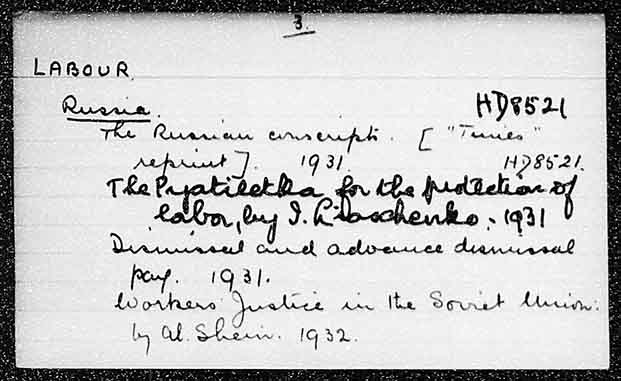 3.
LABOUR.
Russia. HD8521
The Russian conscripts. ["Times"
reprint]. 1931. HD8521.
The Pyatiletka for the protection of
labor, by I. Liaschenko. 1931
Dismissal and advance dismissal
pay. 1931.
Workers' Justice in the Soviet Union:
by Al. Shein. 1932.